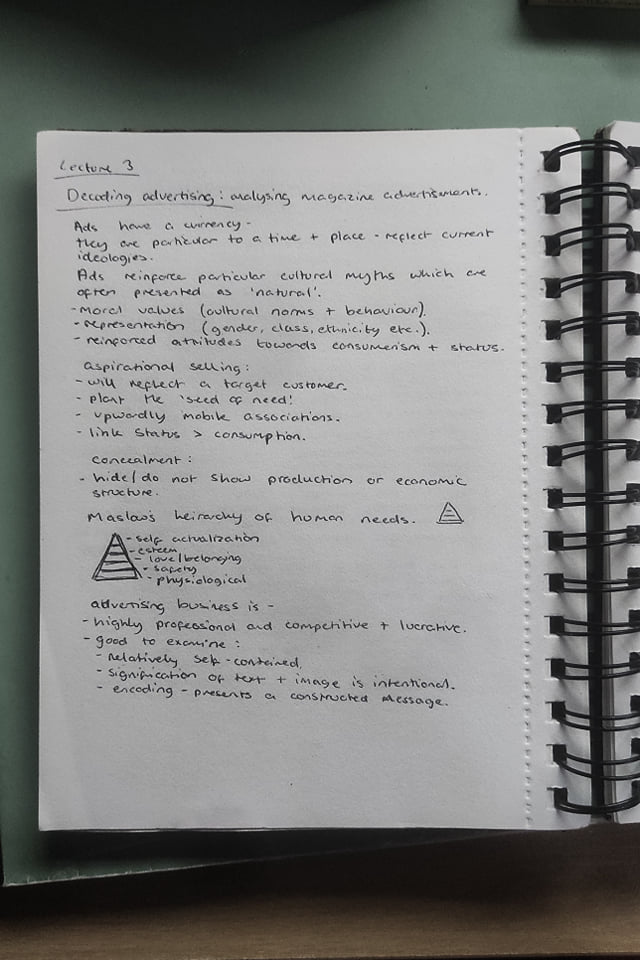 Lecture 3
Decoding advertising: analysing magazine advertisements.
Ads have a currency -
they are particular to a time + place - reflect current
ideologies.
Ads reinforce particular cultural myths which are
often presented as 'natural'.
- moral values (cultural norms + behaviour).
- representation (gender, class, ethnicity etc.).
- reinforced attitudes towards consumerism + status.
aspirational selling:
- will reflect a target customer.
- plant the 'seed of need!
- upwardly mobile associations.
- link status > consumption.
concealment:
- hide/do not show production or economic
structure.
Maslow's heirarchy of human needs.
- self actualization
- esteem
- love/belonging
- safety
- physiological
advertising business is -
- highly professional and competitive + lucrative.
- good to examine:
- relatively self-contained.
- signification of text + image is intentional.
- encoding - presents a constructed message.